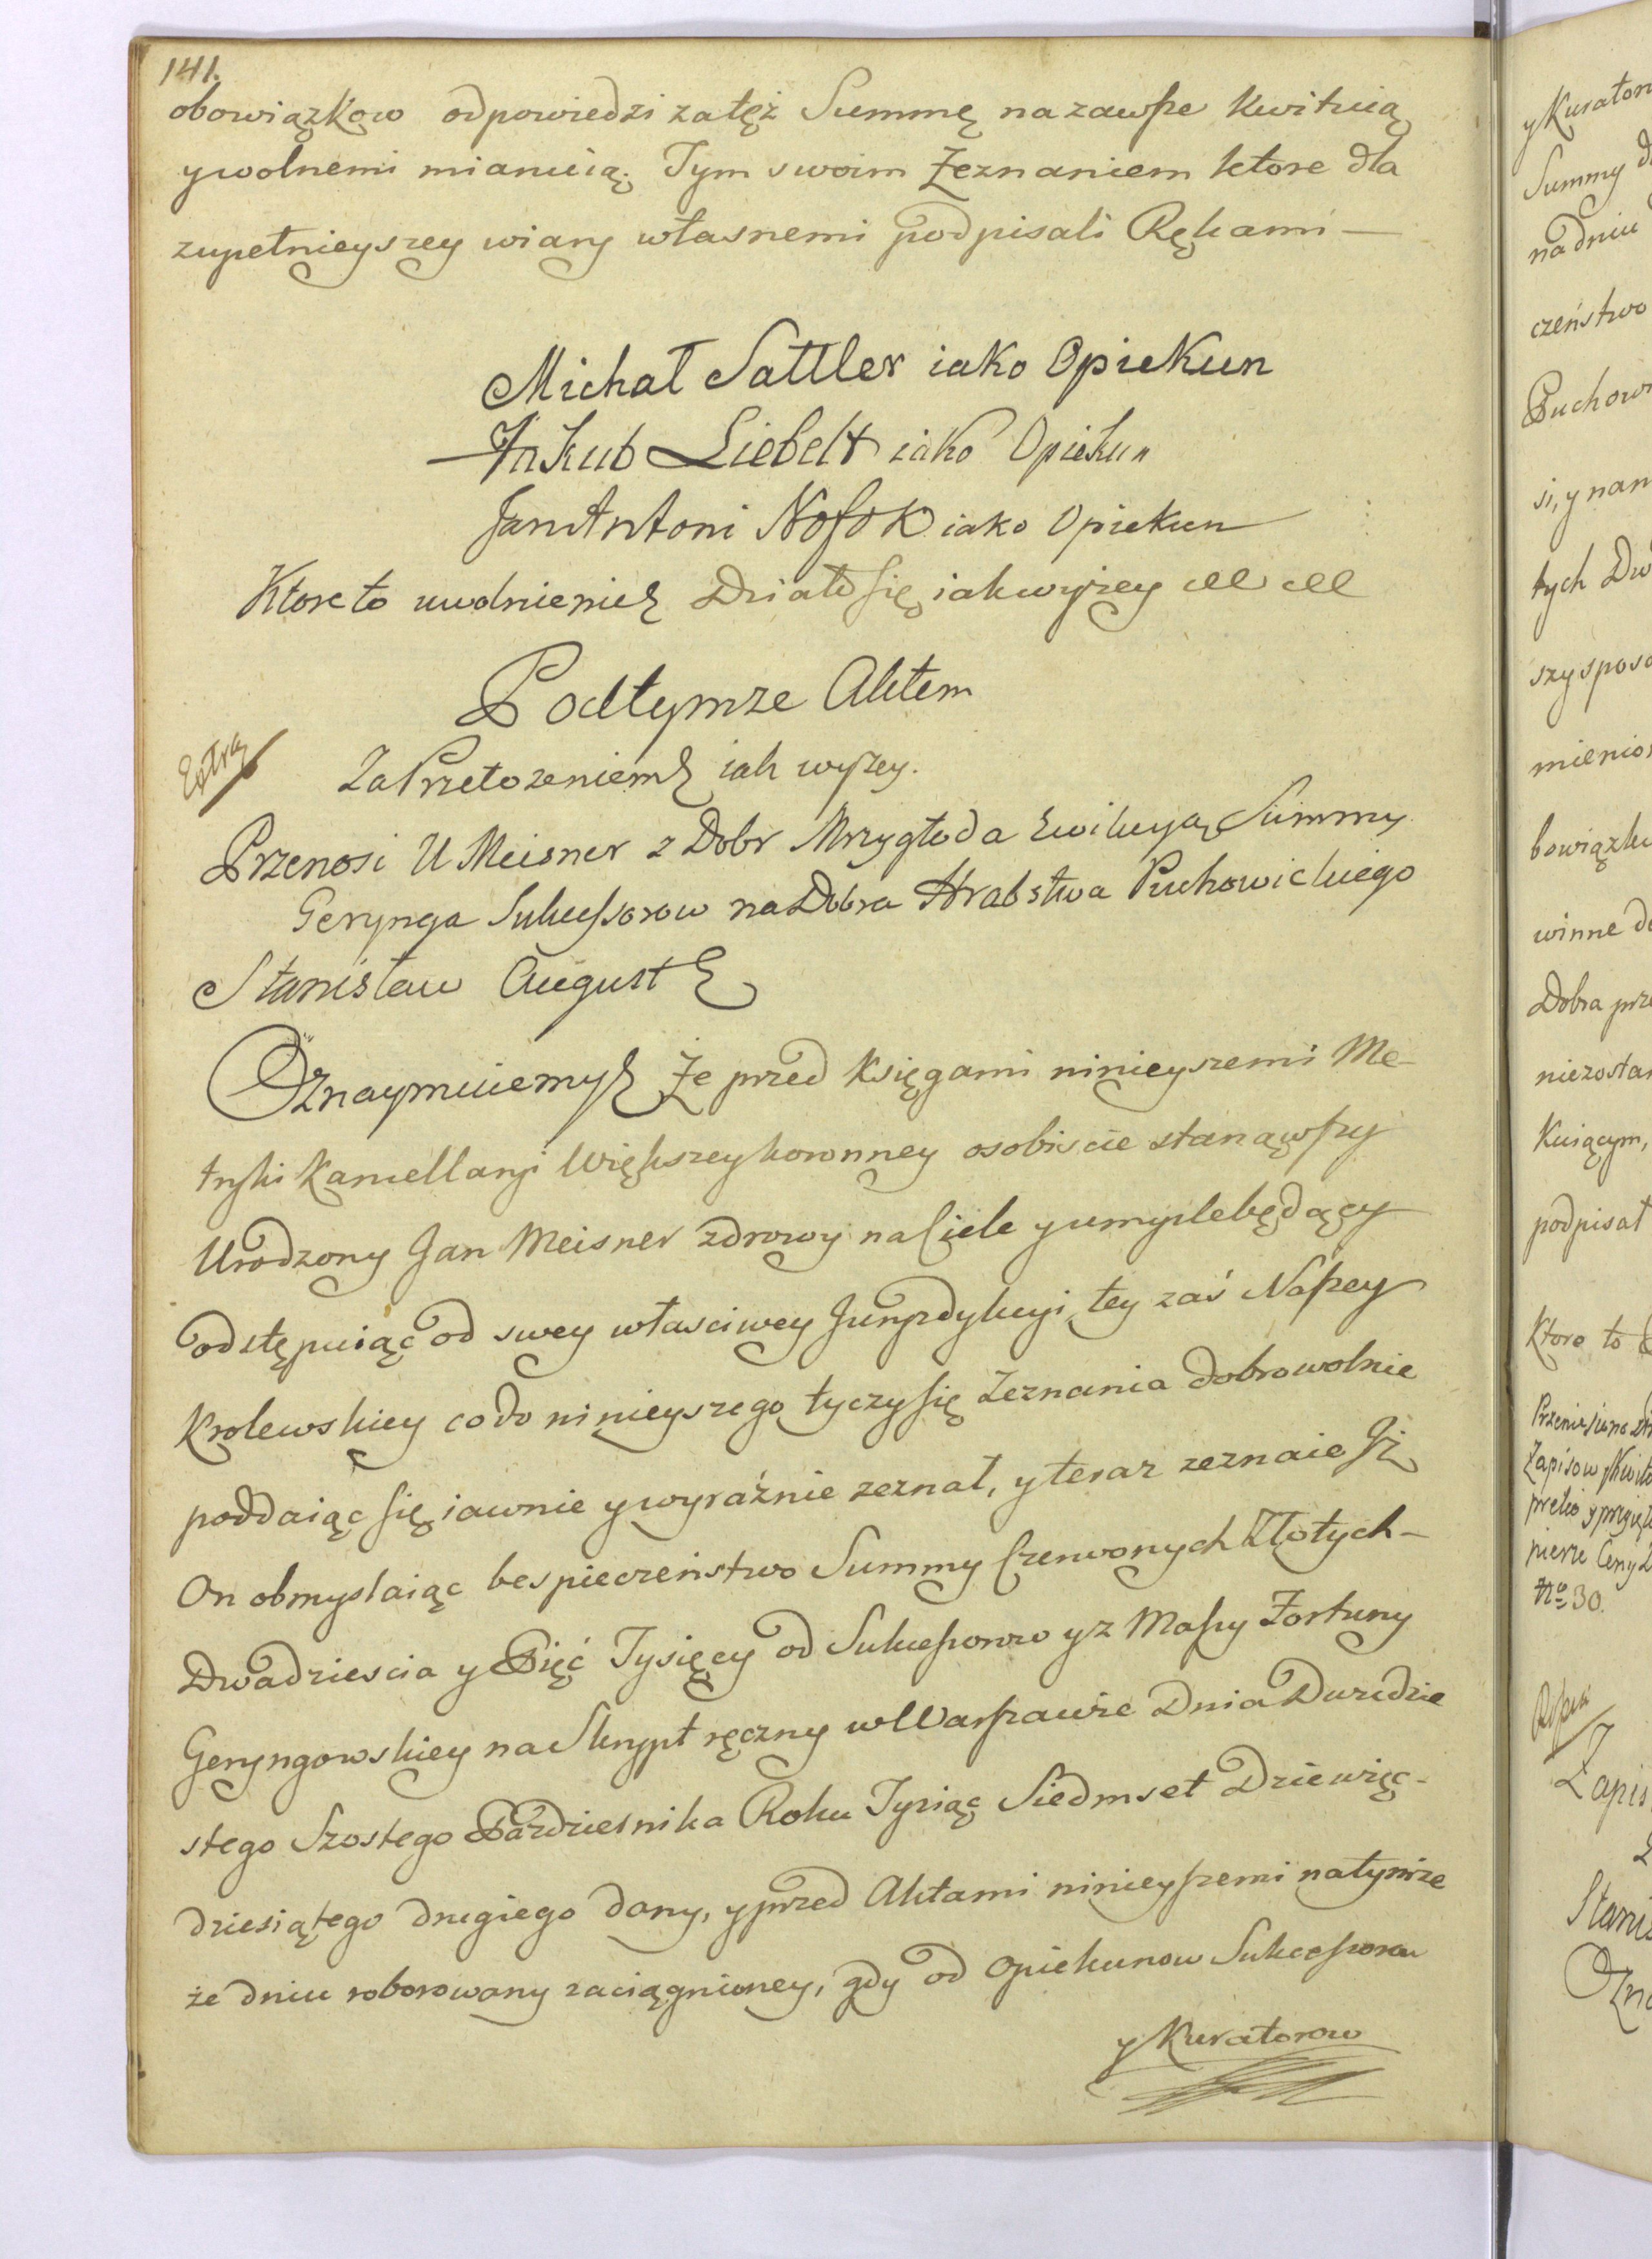 141.
obowiązkow odpowiedzi zatęż Summę na zawsze kwituią
y wolnemi mianuią. Tym swoim Zeznaniem ktore dla
zupełnieyszey wiary własnemi podpisali Rękami —
Michał Sattler iako Opiekun
Jakub Liebelt iako Opiekun
Jan Antoni Nosok iako Opiekun
Ktore to uwolnienie Działo się iak wyżey
Pod tymze Aktem
Extra
Za Przełozeniem iak wyżey.
Przenosi U Meisner z Dobr Mrzygłoda Ewikcyą Summy
Gerynga Sukcessorow na Dobra Hrabstwa Puchowickiego
Stanisław August
Oznaymuiemy Że przed Księgami ninieyszemi Me-
tryki Kancellaryi Większey koronney osobiscie stanąwszy
Urodzony Jan Meisner zdrowy na Ciele y umysle będący
odstępuiąc od swey własciwey Juryzdykcyi, tey zaś Naszey
Krolewskiey co do ninieyszego tyczy się Zeznania dobrowolnie
poddaiąc się iawnie y wyraźnie zeznał, y teraz zeznaie Jż
On obmyslaiąc bespieczeństwo Summy Czerwonych Złotych-
Dwadziescia y Pięć Tysięcy od Sukcessorow y z Massy Fortuny
Geryngowskiey na Skrypt ręczny w Warszawie Dnia Dwudzie
stego Szostego Pazdziernika Roku Tysiąc Siedmset Dziewięc-
dziesiątego drugiego dany, y przed Aktami ninieyszemi na tymże
że dniu roborowany zaciągnioney, gdy od Opiekunow Sukcessorow
y Kuratorow
y Kurator
Summy
na dniu
czeństwo
Puchow
si, y nan
tych Dw
szy sposo
mienio
bowiązku
winne do
Dobra prz
niezosta
kuiącym,
podpisał
Ktore to
Przeniesiono
Zapisow y Kwito
piere Ceny
No 30.
Zapis
Stanis
Ozna